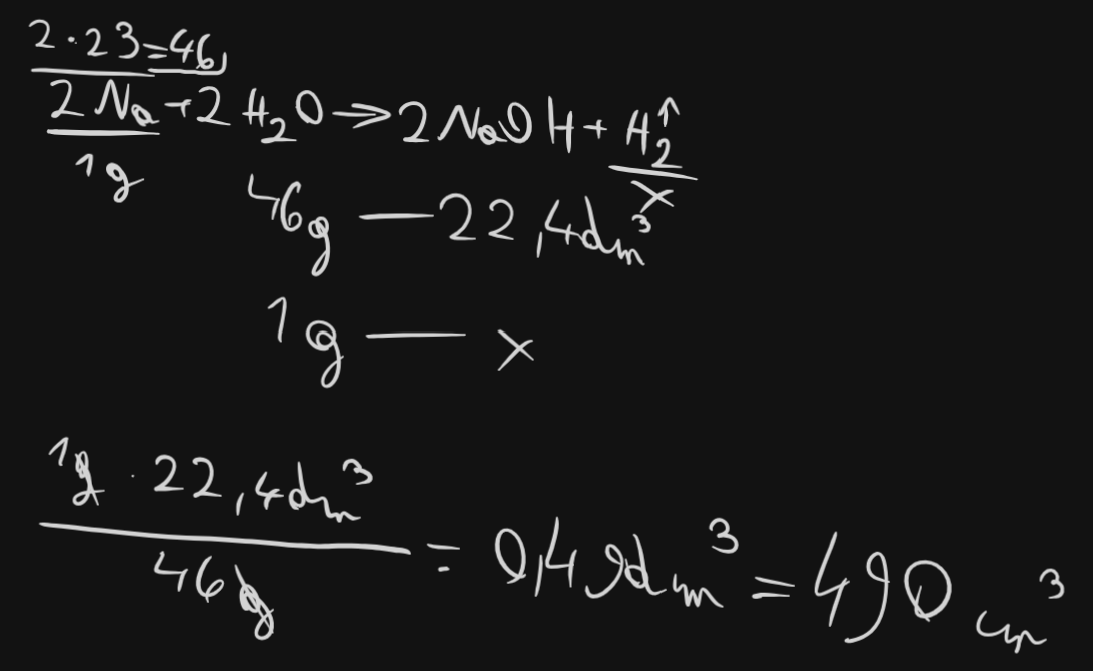 2·23=46
2Na+2H₂O→2NaOH+H₂↑
1g x
46g — 22,4dm³
1g — x
1g · 22,4dm³
46g = 0,49dm³ = 490 cm³